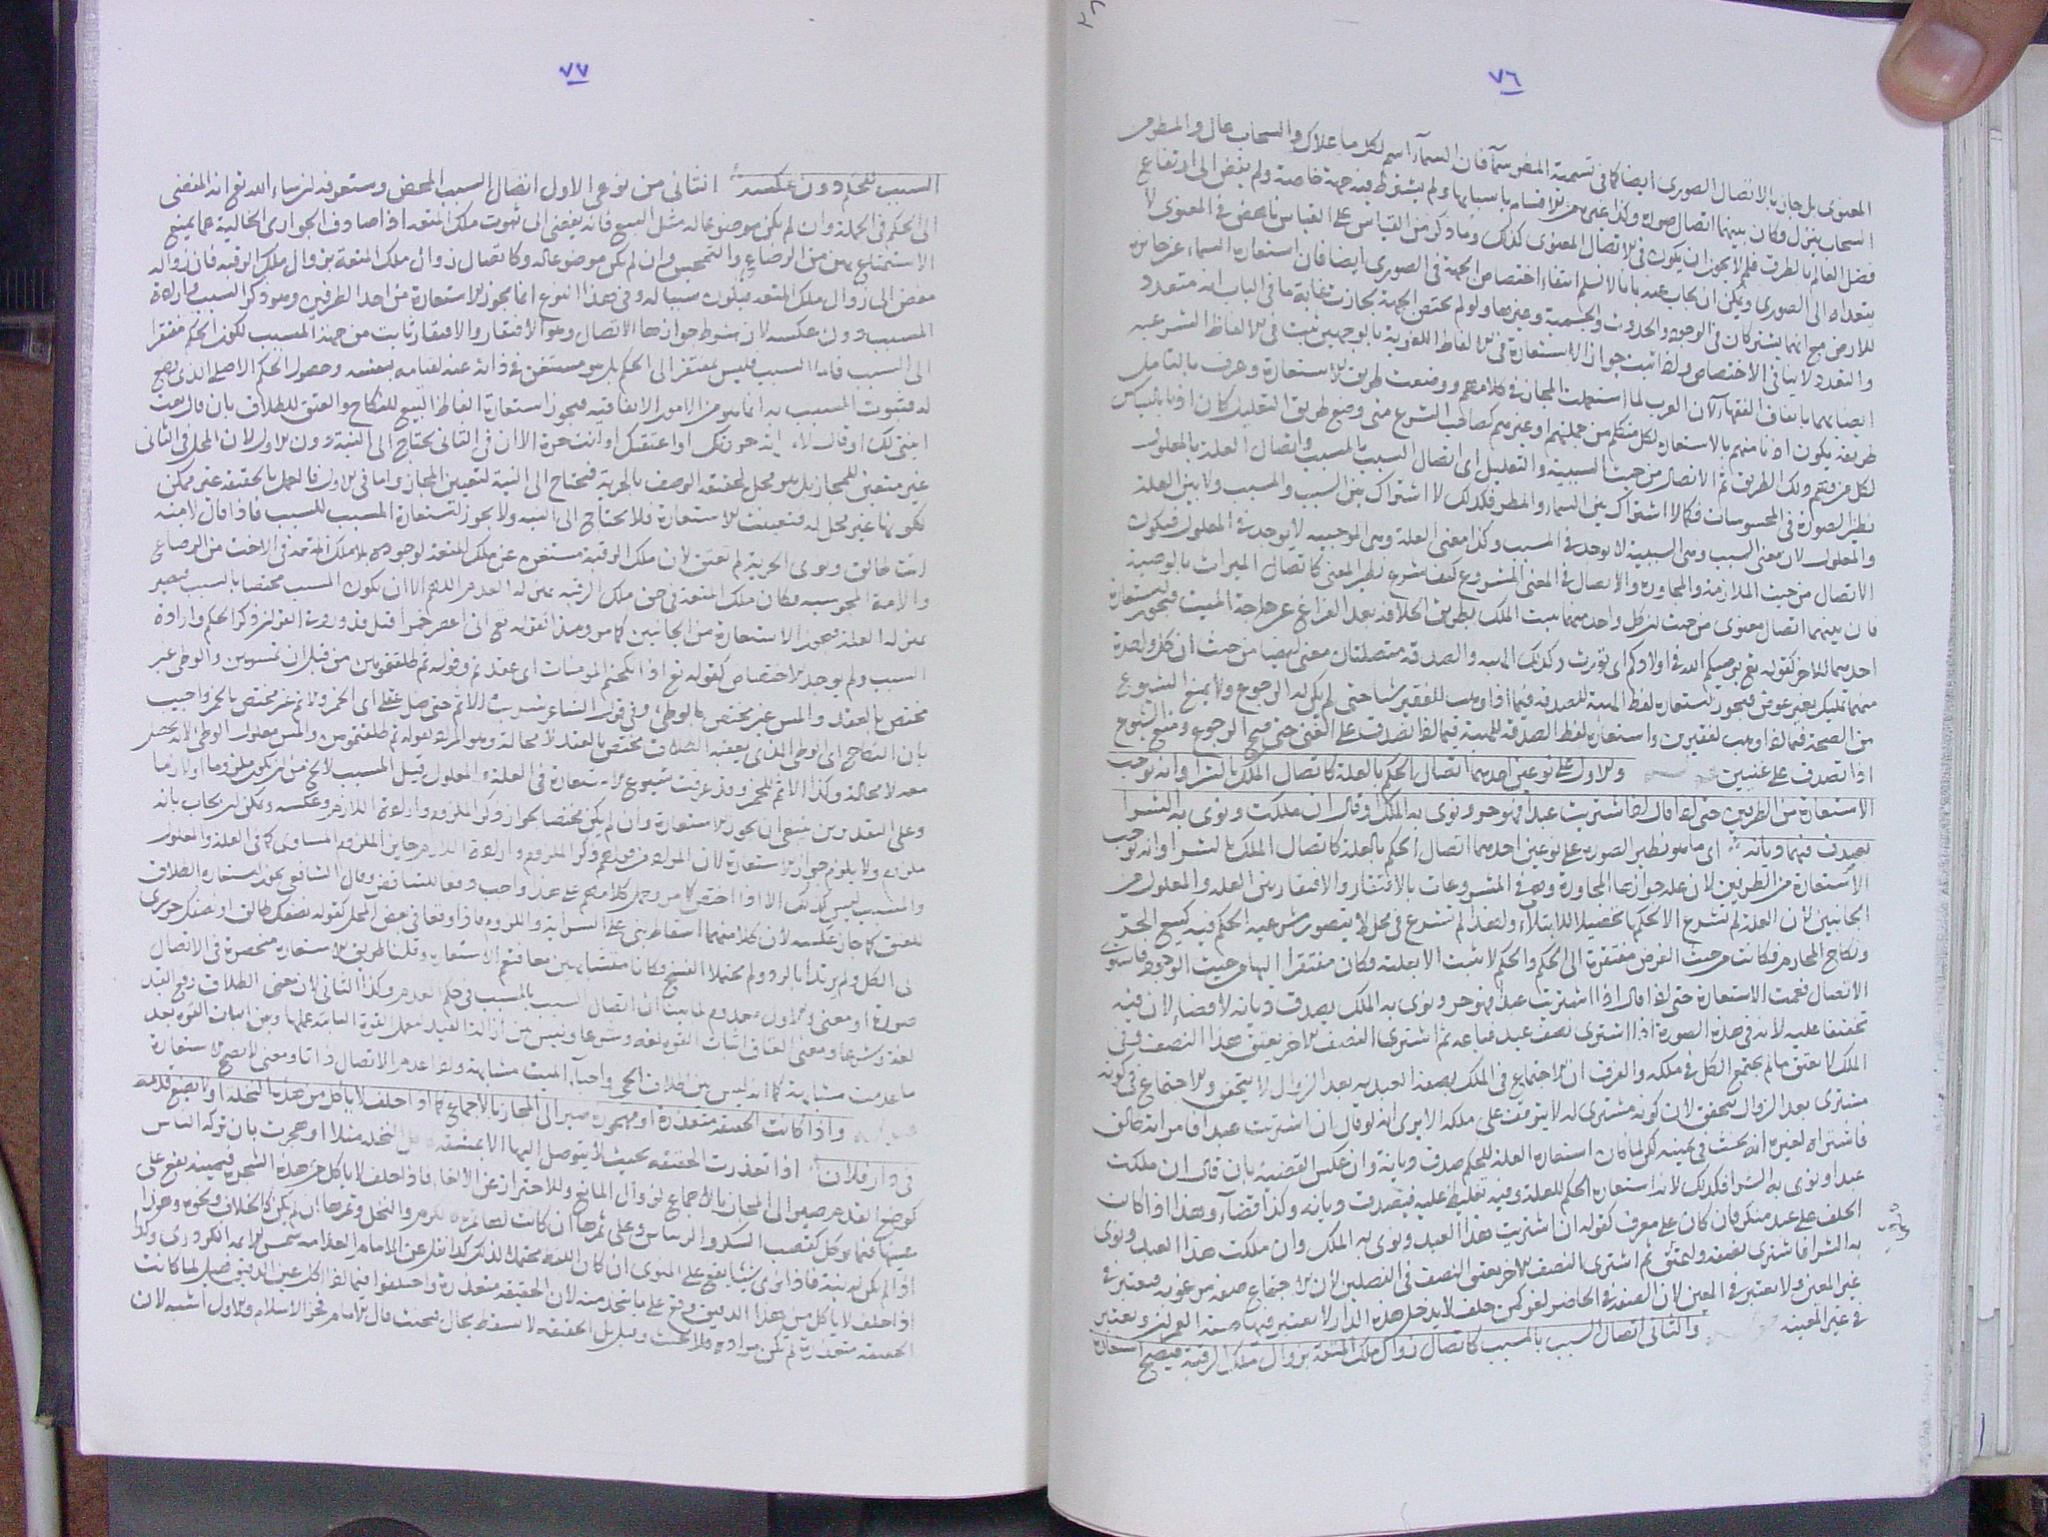 ٧٦
المعنوى بل جاز بالاتصال الصورى ايضا كما فى تسمية المطر سمآ فان السماء اسم لكل ما علاك والسحاب عال والمطر من
السحاب ينزل وكان بينهما اتصال صورة
فضل العالم بالطرف فلم لا يجوز ان يكون فى الاتصال المعنوى كذلك وما ذكر من القياس على القياس ناهض فى المعنوى لا
يتعداه الى الصورى ويمكن ان يجاب عنه بانا لا نسلم انتفاء اختصاص الجهة فى الصورى ايضا فان استعارة السماء
للارض مع انهما يشتركان فى الوجود والحدوث والجسمية وغيرها
والتعدد لا ينافى الاختصاص ولما ثبت جواز الاستعارة فى الالفاظ اللغوية بالوجهين ثبت فى الالفاظ الشرعية
ايضا بهما باتفاق الفقهاء لان العرب لما استعملت المجاز فى كلامهم ووضعت طريق الاستعارة وعرف بالتامل
طريقه يكون اذنا منهم بالاستعارة لكل متكلم من جملتهم او غيرهم كصاحب الشرع متى وضع طريق التعليل كان اذنا بالقياس
لكل من فهم ذلك الطريق ثم الاتصال من حيث السببية والتعليل اى اتصال السبب بالمسبب واتصال العلة بالمعلول
نظير الصورة فى المحسوسات فكما لا اشتراك بين السماء والمطر فكذلك لا اشتراك بين السبب والمسبب ولا بين العلة
والمعلول لان معنى السبب وهى السببية لا يوجد فى المسبب وكذا معنى العلة وهى الموجبية لا يوجد فى المعلول فيكون
الاتصال من حيث الملازمة والمجاورة والاتصال فى المعنى المشروع كيف شرع نظير المعنى كاتصال الميراث بالوصية
فان بينهما اتصال معنوى من حيث ان كل واحد منهما يثبت الملك بطريق الخلافة بعد الفراغ عن حاجة الميت فيجوز استعارة
احدهما للاخر كقوله تع يوصيكم الله فى اولادكم اى يورث وكذلك الهبة والصدقة متصلتان معنى ايضا من حيث ان كل واحدة
منهما تمليك بغير عوض فيجوز استعارة لفظ الهبة للصدقة فيما اذا وهب للفقير شيا حتى لم يكن له الرجوع ولا يمنع الشيوع
من الصحة فيما لو وهب لفقيرين واستعارة لفظ الصدقة للهبة فيما لو تصدق على الغنى حتى صح الرجوع ومنع الشيوع
اذا تصدق على غنيين والاول على نوعين احدهما اتصال الحكم بالعلة كاتصال الملك بالشرا وانه يوجب
الاستعارة من الطرفين حتى لو قال ان اشتريت عبدا فهو حر ونوى به الملك او قال ان ملكت ونوى به الشرا
يصدق فيهما ديانة اى ما هو نظير الصورة على نوعين احدهما اتصال الحكم بالعلة كاتصال الملك بالشرا وانه يوجب
الاستعارة من الطرفين لان علة جوازها المجاورة وهى فى المشروعات بالافتقار والافتقار بين العلة والمعلول من
الجانبين لان العلة لم تشرع الا لحكمها تحصيلا للابتلاء ولهذا لم تشرع فى محل لا يتصور شرعية الحكم فيه كبيع الحر
ونكاح المحارم فكانت من حيث الغرض مفتقرة الى الحكم والحكم لا يثبت الا بعلته وكان مفتقرا اليها من حيث الوجود فاستوى
الاتصال فعمت الاستعارة حتى لو قال اذا اشتريت عبدا فهو حر ونوى به الملك يصدق ديانة لا قضاء لان فيه
تخفيفا عليه لانه فى هذه الصورة اذا اشترى نصف عبد فباعه ثم اشترى النصف الاخر يعتق هذا النصف وفى
الملك لا يعتق ما لم يجتمع الكل فى ملكه والفرق ان الاجتماع فى الملك بصفة العبدية بعد الزوال لا يتحقق والاجتماع فى كونه
مشترى بعد الزوال متحقق لان كونه مشترى له لا يتوقف على ملكه الا يرى انه لو قال ان اشتريت عبدا فامراته طالق
فاشتراه لغيره انه يحنث فى يمينه لكن لما كان استعارة العلة للحكم صدق ديانة وان عكس القضية بان قال ان ملكت
عبدا ونوى به الشرا فكذلك لانه استعارة الحكم للعلة وفيه تغليظ عليه فيصدق ديانة وكذا قضآء وهذا اذا كان
الحلف على عبد منكر فان كان على معرف كقوله ان اشتريت هذا العبد ونوى به الملك وان ملكت هذا العبد ونوى
به الشرا فاشترى نصفه ثم اشترى النصف الاخر يعتق النصف فى الفصلين لان الاجتماع صفة مرغوبة فيعتبر فى
غير المعين ولا يعتبر فى المعين لان الصفة فى الحاضر لغو كمن حلف لا يدخل هذه الدار لا يعتبر فيها صفة العمران ويعتبر
فى غير المعينة والثانى اتصال السبب بالمسبب كاتصال زوال ملك المتعة بزوال ملك الرقبة فيصح استعارة
٧٧
السبب للحكم دون عكسه الثانى من نوعى الاول اتصال السبب المحض وستعرفه ان شاء الله تع انه المفضى
الى الحكم فى الجملة وان لم يكن موضوعا له مثل البيع فانه يفضى الى ثبوت ملك المتعة اذا صادف الجوارى الخالية عما يمنع
الاستمتاع بهن من الرضاع والتمجس وان لم يكن موضوعا له وكاتصال زوال ملك المتعة بزوال ملك الرقبة فان زواله
مفض الى زوال ملك المتعة فيكون سببا له وفى هذا النوع انما يجوز الاستعارة من احد الطرفين وهو ذكر السبب وارادة
المسبب دون عكسه لان شرط جوازها الاتصال وهو الافتقار والافتقار ثابت من جهة المسبب لكون الحكم مفتقرا
الى السبب فاما السبب فليس بمفتقر الى الحكم بل هو مستغن فى ذاته عنه لقيامه بنفسه وحصول الحكم الاصلى الذى وضع
له فثبوت المسبب به انما هو من الامور الاتفاقية فيجوز استعارة الفاظ البيع للنكاح والعتق للطلاق بان قال بعت
ابنتى لك او قال لامراته حررتك او اعتقتك او انت حرة الا ان فى الثانى يحتاج الى النية دون الاول لان المحل فى الثانى
غير متعين للمجاز بل هو محل لحقيقة الوصف بالحرية فيحتاج الى النية لتعيين المجاز واما فى الاول فالعمل بالحقيقة غير ممكن
لكونها غير محل له فتعينت للاستعارة فلا يحتاج الى النية ولا يجوز استعارة المسبب للسبب فاذا قال لامته
انت طالق ونوى الحرية لم تعتق لان ملك الرقبة مستغن عن ملك المتعة لوجوده بلا ملك المتعة فى الاخت من الرضاع
والامة المجوسية فكان ملك المتعة فى حق ملك الرقبة بمنزلة العدم اللهم الا ان يكون المسبب مختصا بالسبب فيصير
بمنزلة العلة فيجوز الاستعارة من الجانبين كما مر وهذا كقوله تع انى اعصر خمرا
السبب ولم يوجد الاختصاص كقوله تع اذا نكحتم المومنات اى عقدتم وقوله ثم طلقتموهن من قبل ان تمسوهن والوطى غير
مختص بالعقد والمس غير مختص بالوطئ وفى قول الشاعر شربت الاثم حتى ضل عقلى اى الخمر والاثم غير مختص بالخمر واجيب
بان النكاح اى الوطى الذى يعقبه الطلاق مختص بالعقد لا محالة وهو المراد لقوله ثم طلقتموهن والمس معلول الوطى لانه يحصل
معه لا محالة وكذا الاثم للخمر وقد عرفت شيوع الاستعارة فى العلة والمعلول
وعلى التقديرين ينبغى ان يجوز الاستعارة وان لم يكن مختصا لجواز ذكر الملزوم وارادة اللازم وعكسه ويمكن ان يجاب بانه
ملزوم ولا يلزم جواز الاستعارة لان المراد من قولهم ذكر الملزوم وارادة اللازم جايز الملزوم المساوى كما فى العلة والمعلول
والمسبب ليس كذلك الا اذا اختص كما مر وحمل كلامهم على هذا واجب دفعا للتناقض وقال الشافعى يجوز استعارة الطلاق
للعتق كما جاز عكسه لان كلا منهما اسقاط بنى على السراية واللزوم فاذا وقعا فى بعض المحل كقوله نصفك طالق او نصفك حر سرى
الى الكل ولم يرتدا بالرد ولم يحتملا الفسخ فكانا متشابهين معا فتعم الاستعارة وقلنا طريق الاستعارة منحصرة فى الاتصال
صورة او معنى والاول معدوم لما بينا ان اتصال السبب بالمسبب فى حكم العدم وكذا الثانى لان معنى الطلاق رفع القيد
لغة وشرعا ومعنى العتاق اثبات القوة لغة وشرعا وليس بين ازالة القيد لتعمل القوة الثابتة عملها وبين اثبات القوة بعد
ما عدمت مشابهة كما انه ليس بين اطلاق الحى واحياء الميت مشابهة ولو عدم الاتصال ذاتا ومعنى لا يصح الاستعارة
واذا كانت الحقيقة متعذرة او مهجورة صير الى المجاز بالاجماع كما اذا حلف لا ياكل من هذه النخلة او لا يضع قدمه
فى دار فلان اذا تعذرت الحقيقة بحيث لا يتوصل اليها الا بمشقة كاكل النخلة مثلا او هجرت بان تركه الناس
كوضع القدم صير الى المجاز بالاجماع لزوال المانع وللاحتراز عن الالغا فاذا حلف لا ياكل من هذه الشجرة فيمينه يقع على
عينها فيما يوكل كقصب السكر والريباس وعلى ثمرها ان كانت لها ثمرة كالكرم والنخل وثمنها ان لم يكن كالخلاف ونحوه وهذا
اذا لم يكن له نية فاذا نوى شيا يقع على المنوى ان كان اللفظ محتملا لذلك كذا نقل عن الامام العلامة شمس الايمة الكردرى وكذا
اذا حلف لا ياكل من هذا الدقيق وقع على ما يتخذ منه لان الحقيقة متعذرة واختلفوا فيما لو اكل عين الدقيق قيل لما كانت
الحقيقة متعذرة لم تكن مرادة فلا يحنث وقيل بل الحقيقة لا تسقط بحال فيحنث قال الامام فخر الاسلام والاول اشبه لان